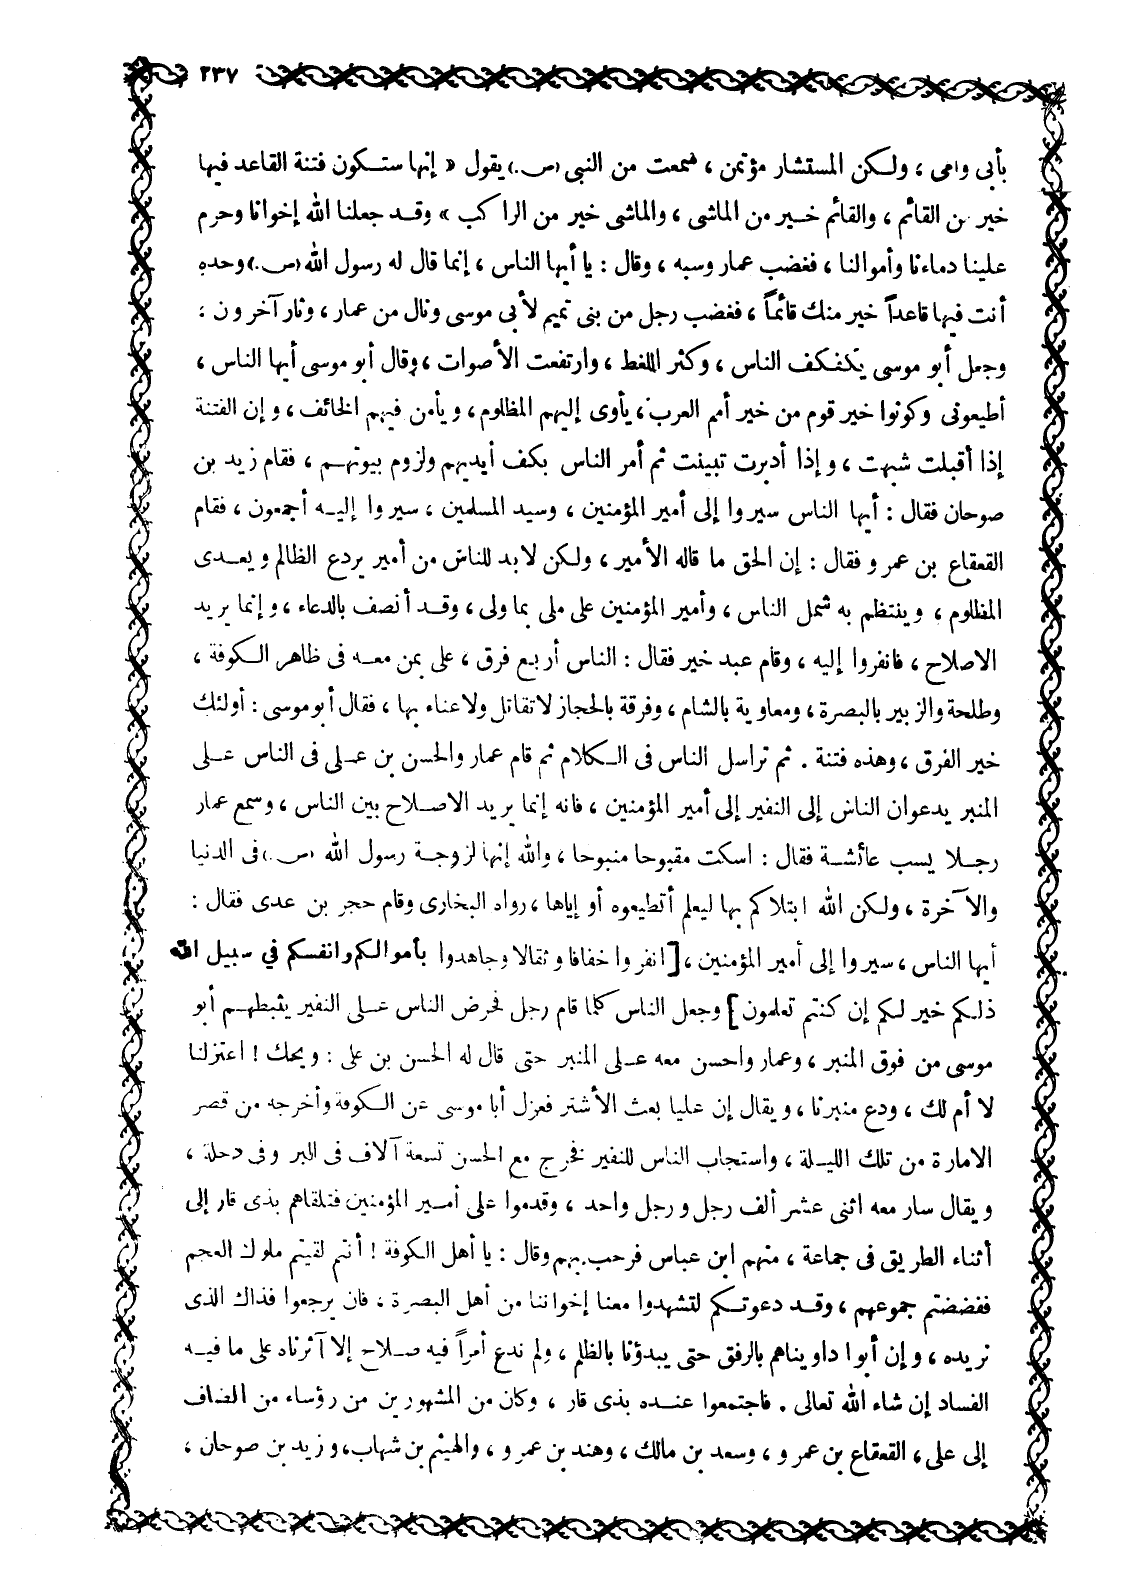 ٢٣٧
بأبى وأمى ، ولكن المستشار مؤتمن ، سمعت من النبى (س.) يقول « إنها ستكون فتنة القاعد فيها
خير من القائم ، والقائم خير من الماشى ، والماشى خير من الراكب » وقد جعلنا الله إخوانا وحرم
علينا دماءنا وأموالنا ، فغضب عمار وسبه ، وقال : يا أيها الناس ، إنما قال له رسول الله (س.) وحده
أنت فيها قاعداً خير منك قائماً ، فغضب رجل من بنى تميم لأبى موسى ونال من عمار ، وثار آخرون :
وجعل أبو موسى يكفكف الناس ، وكثر اللغط ، وارتفعت الأصوات ، وقال أبو موسى أيها الناس ،
أطيعونى وكونوا خير قوم من خير أمم العرب ، يأوى إليهم المظلوم ، ويأمن فيهم الخائف ، وإن الفتنة
إذا أقبلت شبهت ، وإذا أدبرت تبينت ثم أمر الناس بكف أيديهم ولزوم بيوتهم ، فقام زيد بن
صوحان فقال : أيها الناس سيروا إلى أمير المؤمنين ، وسيد المسلمين ، سيروا إليه أجمعون ، فقام
القعقاع بن عمرو فقال : إن الحق ما قاله الأمير ، ولكن لابد للناس من أمير يردع الظالم ويعدى
المظلوم ، وينتظم به شمل الناس ، وأمير المؤمنين على ملى بما ولى ، وقد أنصف بالدعاء ، وإنما يريد
الاصلاح ، فانفروا إليه ، وقام عبد خير فقال : الناس أربع فرق ، على بمن معه فى ظاهر الكوفة ،
وطلحة والزبير بالبصرة ، ومعاوية بالشام ، وفرقة بالحجاز لا تقاتل ولا عناء بها ، فقال أبو موسى : أولئك
خير الفرق ، وهذه فتنة . ثم تراسل الناس فى الكلام ثم قام عمار والحسن بن على فى الناس على
المنبر يدعوان الناس إلى النفير إلى أمير المؤمنين ، فانه إنما يريد الاصلاح بين الناس ، وسمع عمار
رجلا يسب عائشة فقال : اسكت مقبوحا منبوحا ، والله إنها لزوجة رسول الله (س.) فى الدنيا
والآخرة ، ولكن الله ابتلاكم بها ليعلم أتطيعوه أو إياها ، رواه البخارى وقام حجر بن عدى فقال :
أيها الناس ، سيروا إلى أمير المؤمنين ، [ انفروا خفافا وثقالا وجاهدوا بأموالكم وانفسكم في سبيل الله
ذلكم خير لكم إن كنتم تعلمون ] وجعل الناس كلما قام رجل فحرض الناس على النفير يثبطهم أبو
موسى من فوق المنبر ، وعمار واحسن معه على المنبر حتى قال له الحسن بن على : ويحك ! اعتزلنا
لا أم لك ، ودع منبرنا ، ويقال إن عليا بعث الأشتر فعزل أبا موسى عن الكوفة وأخرجه من قصر
الامارة من تلك الليلة ، واستجاب الناس للنفير فخرج مع الحسن تسعة آلاف فى البر وفى دجلة ،
ويقال سار معه اثنى عشر ألف رجل ورجل واحد ، وقدموا على أمير المؤمنين فتلقاهم بذى قار إلى
أثناء الطريق فى جماعة ، منهم ابن عباس فرحب بهم وقال : يا أهل الكوفة ! أنتم لقيتم ملوك العجم
ففضضتم جموعهم ، وقد دعوتكم لتشهدوا معنا إخواننا من أهل البصرة ، فان يرجعوا فذاك الذى
نريده ، وإن أبوا داويناهم بالرفق حتى يبدؤنا بالظلم ، ولم ندع أمراً فيه صلاح إلا آثرناه على ما فيه
الفساد إن شاء الله تعالى . فاجتمعوا عنده بذى قار ، وكان من المشهورين من رؤساء من انضاف
إلى على ، القعقاع بن عمرو ، وسعد بن مالك ، وهند بن عمرو ، والهيثم بن شهاب ، وزيد بن صوحان ،